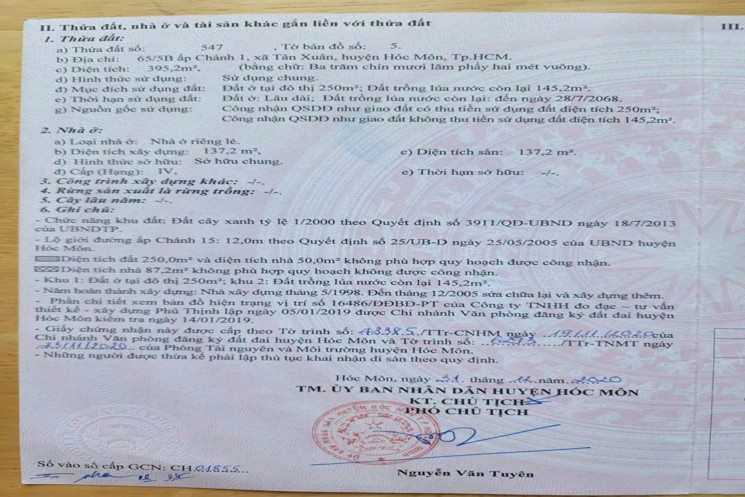 II. Thửa đất, nhà ở và tài sản khác gắn liền với thửa đất
III.
1. Thửa đất:
a) Thửa đất số: 547 , Tờ bản đồ số: 5.
b) Địa chỉ: 65/5B ấp Chánh 1, xã Tân Xuân, huyện Hóc Môn, Tp.HCM.
c) Diện tích: 395,2m², (bằng chữ: Ba trăm chín mươi lăm phẩy hai mét vuông).
d) Hình thức sử dụng: Sử dụng chung.
đ) Mục đích sử dụng đất: Đất ở tại đô thị 250m²; Đất trồng lúa nước còn lại 145,2m².
e) Thời hạn sử dụng đất: Đất ở: Lâu dài; Đất trồng lúa nước còn lại: đến ngày 28/7/2068.
g) Nguồn gốc sử dụng: Công nhận QSDĐ như giao đất có thu tiền sử dụng đất diện tích 250m²;
Công nhận QSDĐ như giao đất không thu tiền sử dụng đất diện tích 145.2m².
2. Nhà ở:
a) Loại nhà ở: Nhà ở riêng lẻ.
b) Diện tích xây dựng: 137,2 m². c) Diện tích sàn: 137,2 m².
d) Hình thức sở hữu: Sở hữu chung.
đ) Cấp (Hạng): IV. e) Thời hạn sở hữu: -/-.
3. Công trình xây dựng khác: -/-.
4. Rừng sản xuất là rừng trồng: -/-.
5. Cây lâu năm: -/-.
6. Ghi chú:
- Chức năng khu đất: Đất cây xanh tỷ lệ 1/2000 theo Quyết định số 3911/QĐ-UBND ngày 18/7/2013
của UBNDTP.
- Lộ giới đường ấp Chánh 15: 12,0m theo Quyết định số 25/UB-D ngày 25/05/2005 của UBND huyện
Hóc Môn.
Diện tích đất 250,0m² và diện tích nhà 50,0m² không phù hợp quy hoạch được công nhận.
Diện tích nhà 87,2m² không phù hợp quy hoạch không được công nhận.
- Khu 1: Đất ở tại đô thị 250m²; khu 2: Đất trồng lúa nước còn lại 145,2m².
- Năm hoàn thành xây dựng: Nhà xây dựng tháng 5/1998. Đến tháng 12/2005 sửa chữa lại và xây dựng thêm.
- Phần chi tiết xem bản đồ hiện trạng vị trí số 16486/ĐĐBĐ-PT của Công ty TNHH đo đạc – tư vấn
thiết kế - xây dựng Phú Thịnh lập ngày 05/01/2019 được Chi nhánh Văn phòng đăng ký đất đai huyện
Hóc Môn kiểm tra ngày 14/01/2019.
- Giấy chứng nhận này được cấp theo Tờ trình số: 43385/TTr-CNHM ngày 19/11/2020 của
Chi nhánh Văn phòng đăng ký đất đai huyện Hóc Môn và Tờ trình số: /TTr-TNMT ngày
23/11/2020 của Phòng Tài nguyên và Môi trường huyện Hóc Môn.
- Những người được thừa kế phải lập thủ tục khai nhận di sản theo quy định.
Hóc Môn, ngày 31 tháng 12 năm 2020
TM. ỦY BAN NHÂN DÂN HUYỆN HÓC MÔN
KT. CHỦ TỊCH
PHÓ CHỦ TỊCH
Nguyễn Văn Tuyên
Số vào sổ cấp GCN: CH 01855